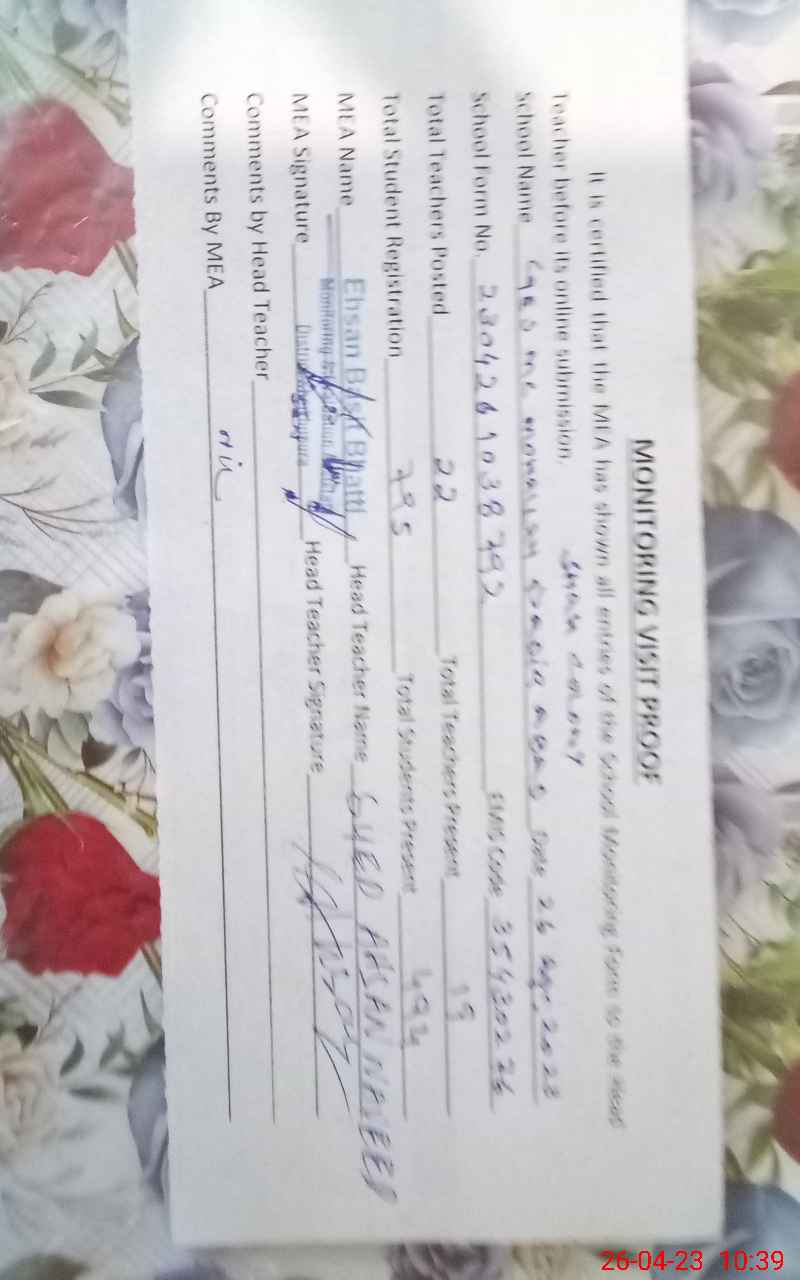 MONITORING VISIT PROOF
It is certified that the MEA has shown all entries of the School Monitoring Form to the Head
Teacher before its online submission.
School Name Date 26 2023
School Form No. EMIS Code 35430226
Total Teachers Posted 22 Total Teachers Present 19
Total Student Registration 795 Total Students Present 494
MEA Name Ehsan Bhatti Head Teacher Name SYED AHSAN NAVEED
Monitoring
MEA Signature Head Teacher Signature
Comments by Head Teacher
Comments By MEA Nil
26-04-23 10:39